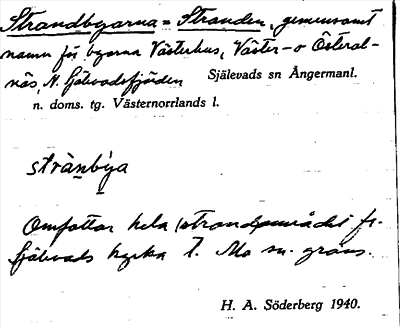 Strandbyarna = Stranden, gemensamt
namn för byarna Västerhus, Väster- o Österal-
näs, N. Själevadsfjärden Själevads sn Ångermanl.
n. doms. tg. Västernorrlands l.
stránbya
Omfattar hela strandområdet fr.
Själevads kyrka t. Mo sn. gräns.
H. A. Söderberg 1940.